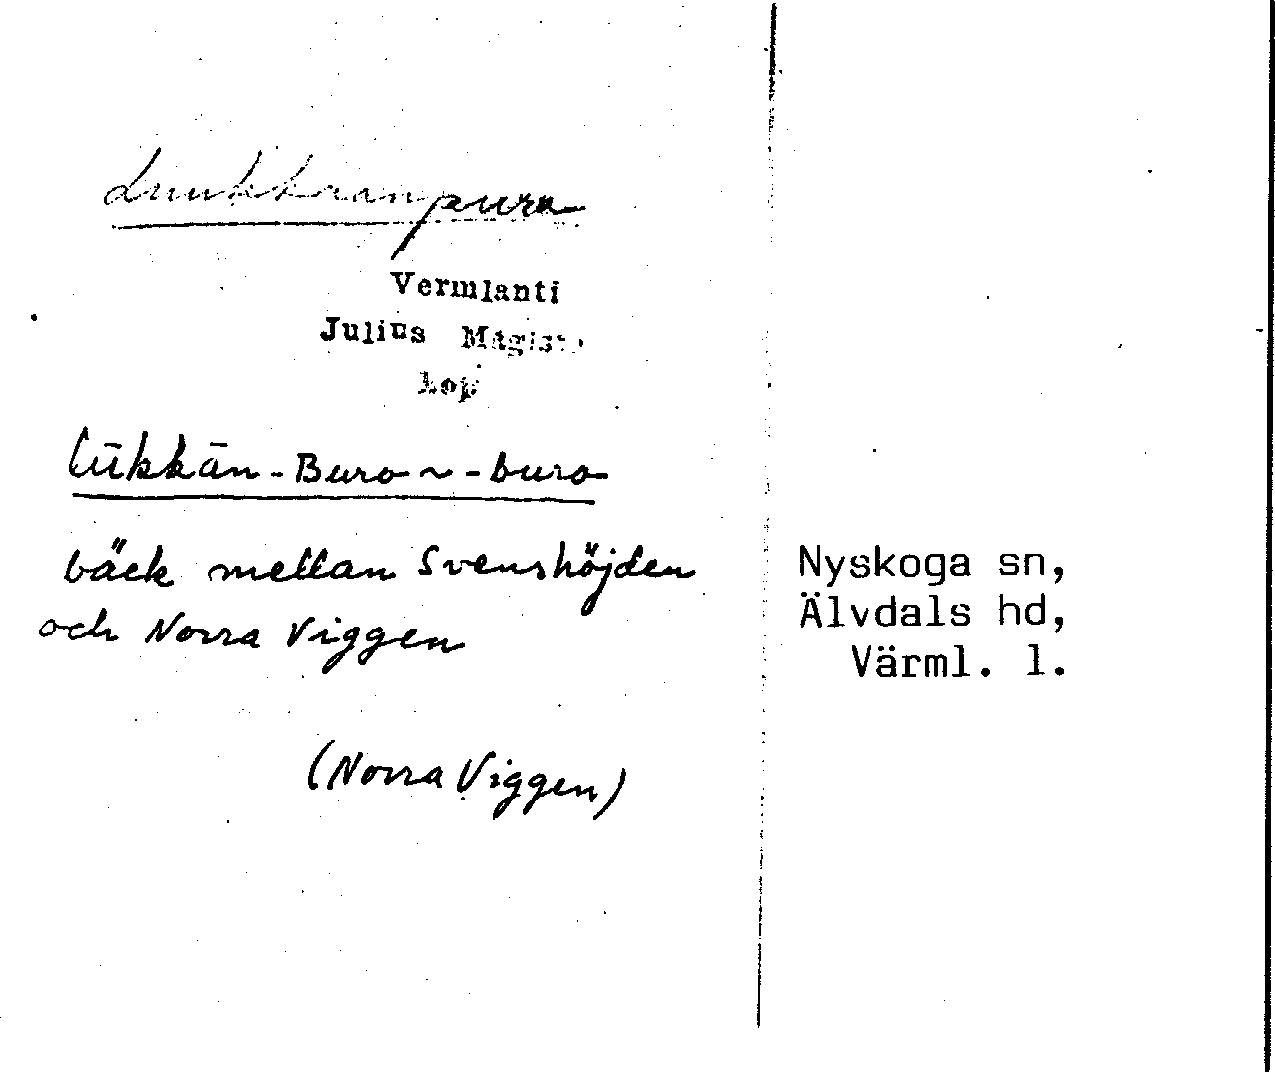 Luukkranpuro
Vermlanti
Julius Mägiste
kop
lūkkān-Buro ~ -buro
bäck mellan Svenshöjden
och Norra Viggen
(Norra Viggen)
Nyskoga sn,
Älvdals hd,
Värml. l.